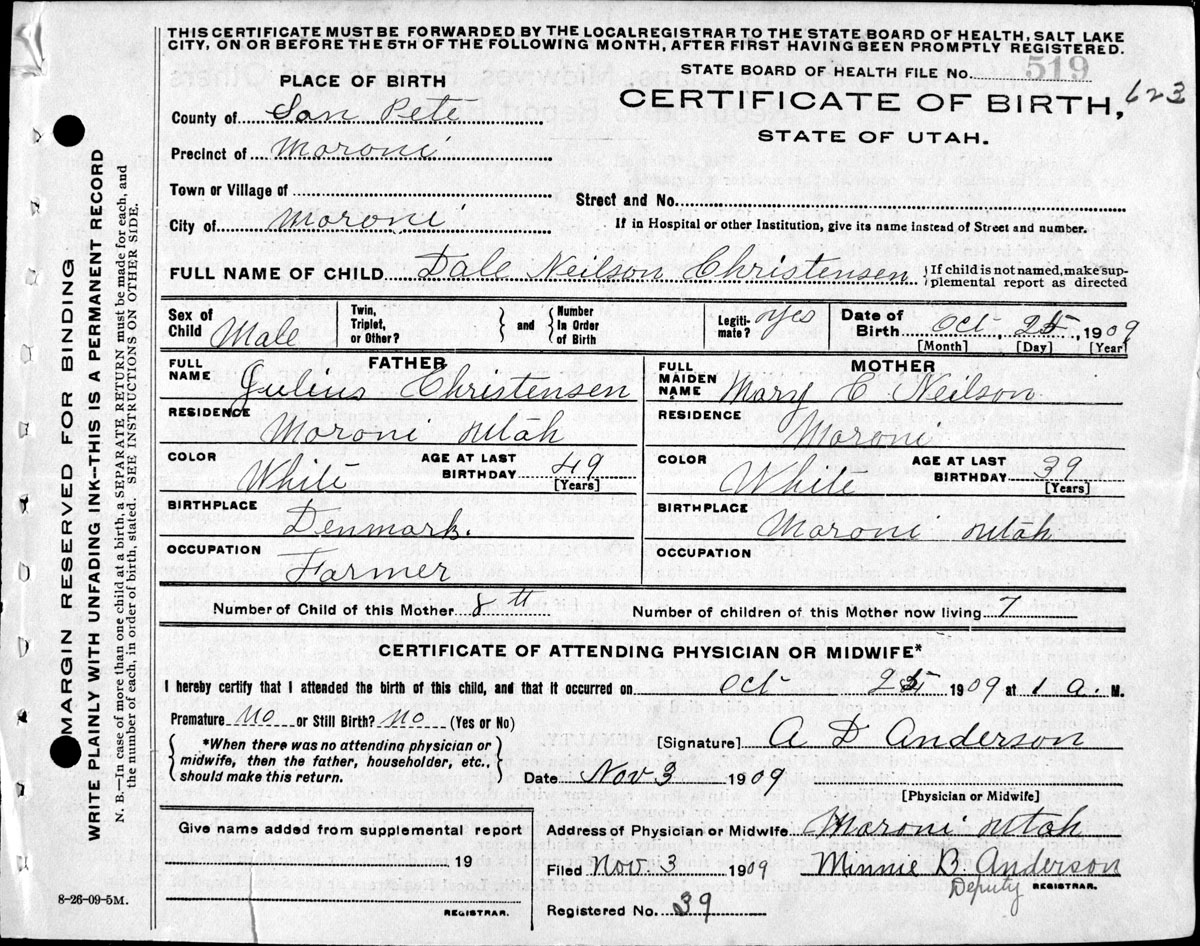 THIS CERTIFICATE MUST BE FORWARDED BY THE LOCAL REGISTRAR TO THE STATE BOARD OF HEALTH, SALT LAKE
CITY, ON OR BEFORE THE 5TH OF THE FOLLOWING MONTH, AFTER FIRST HAVING BEEN PROMPTLY REGISTERED.
STATE BOARD OF HEALTH FILE No. 519
PLACE OF BIRTH
CERTIFICATE OF BIRTH, 623
STATE OF UTAH.
County of San Pete
Precinct of Moroni
Town or Village of
Street and No.
City of Moroni
If in Hospital or other Institution, give its name instead of Street and number.
FULL NAME OF CHILD Dale Neilson Christensen { If child is not named, make sup-
plemental report as directed
Sex of Child Male
Twin, Triplet, or Other? } and { Number In Order of Birth
Legiti-mate? Yes
Date of Birth Oct 25, 1909
[Month] [Day] [Year]
FATHER
FULL NAME Julius Christensen
RESIDENCE Moroni Utah
COLOR White AGE AT LAST BIRTHDAY 49 [Years]
BIRTHPLACE Denmark.
OCCUPATION Farmer
MOTHER
FULL MAIDEN NAME Mary C Neilson
RESIDENCE Moroni
COLOR White AGE AT LAST BIRTHDAY 39 [Years]
BIRTHPLACE Moroni Utah
OCCUPATION
Number of Child of this Mother 8th Number of children of this Mother now living 7
CERTIFICATE OF ATTENDING PHYSICIAN OR MIDWIFE*
I hereby certify that I attended the birth of this child, and that it occurred on Oct 25 1909 at 1 a. M.
Premature No or Still Birth? No (Yes or No)
{ *When there was no attending physician or
midwife, then the father, householder, etc.,
should make this return. }
[Signature] A D Anderson
Date Nov 3 1909
[Physician or Midwife]
Give name added from supplemental report
19
REGISTRAR.
Address of Physician or Midwife Moroni Utah
Filed Nov. 3 1909 Minnie B. Anderson
Deputy REGISTRAR.
Registered No. 39
8-26-09-5M.
MARGIN RESERVED FOR BINDING
WRITE PLAINLY WITH UNFADING INK--THIS IS A PERMANENT RECORD
N. B.—In case of more than one child at a birth, a SEPARATE RETURN must be made for each, and
the number of each, in order of birth, stated. SEE INSTRUCTIONS ON OTHER SIDE.